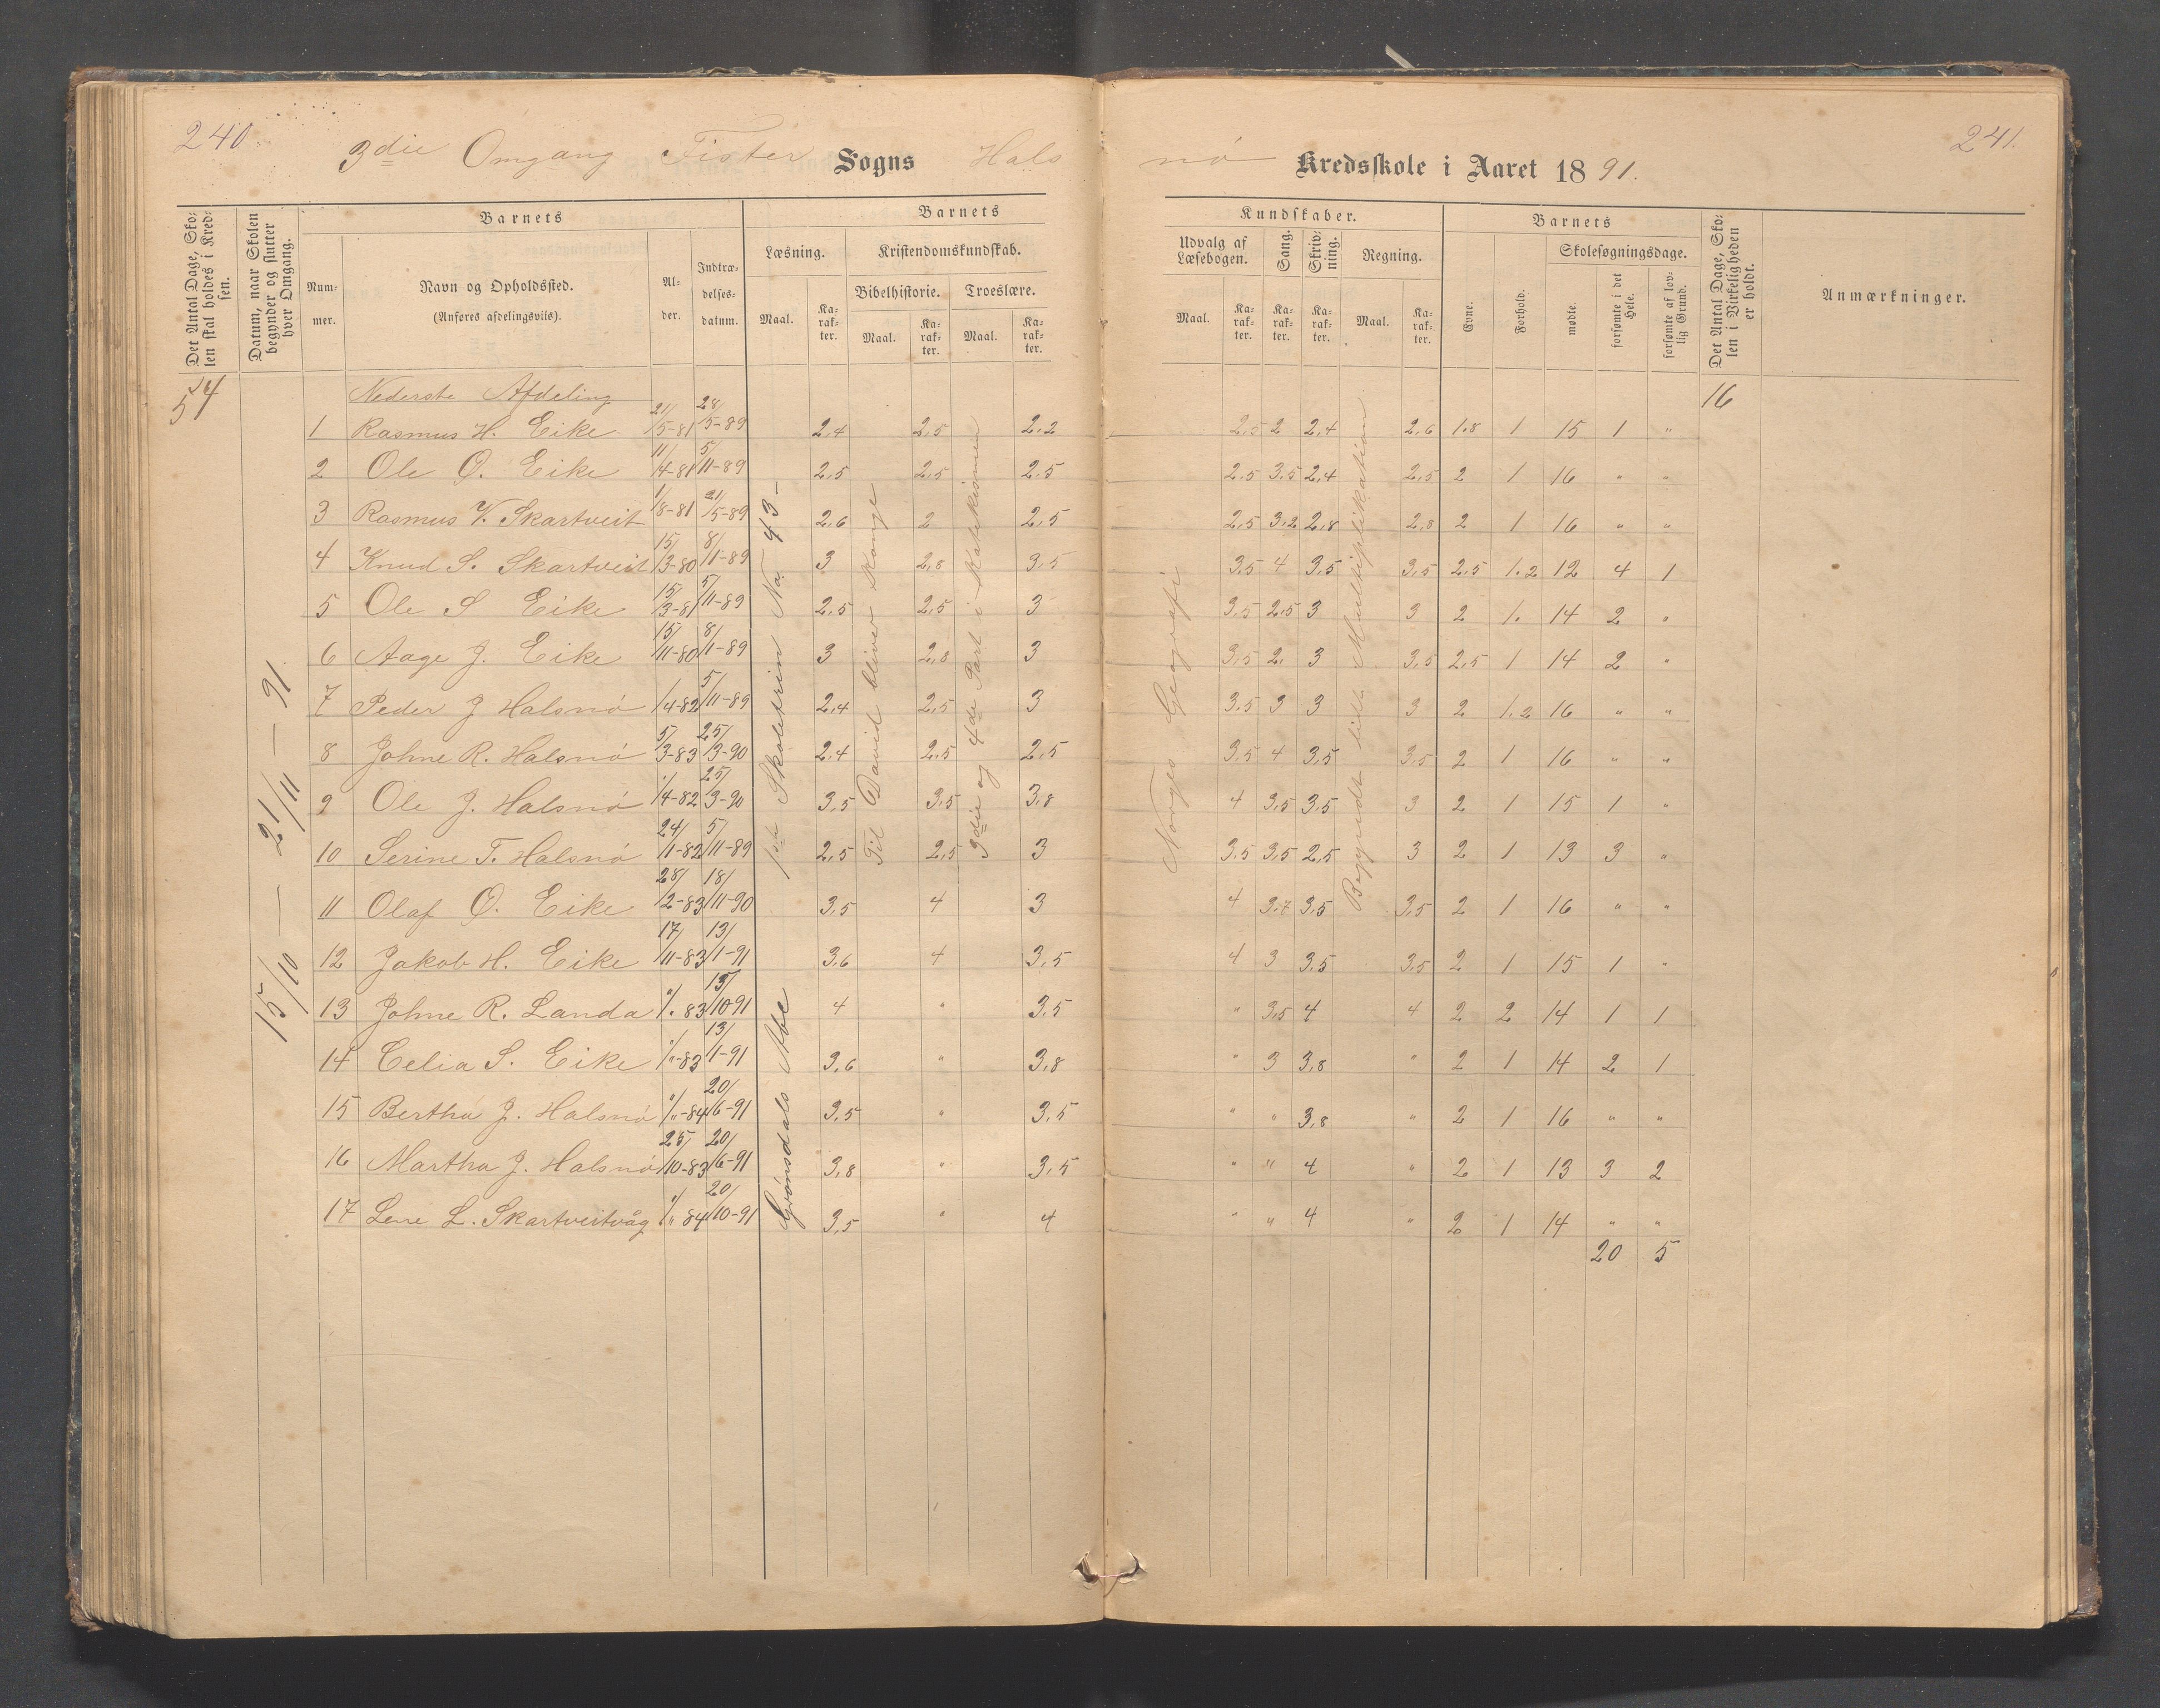 240
241.
3die Omgang Fister Sogns Halsnø Kredsskole i Aaret 1891.
Det Antal Dage, Skolen skal holdes i Kredsen.
Datum, naar Skolen begynder og slutter hver Omgang.
Barnets
Nummer.
Navn og Opholdssted.
(Anføres afdelingsvils).
Alder.
Indtrædelsesdatum.
Barnets
Læsning.
Kristendomskundskab.
Bibelhistorie. Troeslære.
Maal. Karakter. Maal. Karakter. Maal. Karakter.
Kundskaber.
Udvalg af Læsebogen. Sang. Skrivning. Regning.
Maal. Karakter. Karakter. Karakter. Maal. Karakter.
Barnets
Evne. Forhold.
Skolesøgningsdage.
mødte. forsømte i det Hele. forsømte af lovlig Grund.
Det Antal Dage, Skolen i Virkeligheden er holdt.
Anmærkninger.
54
15/10 — 21/11 — 91.
Nederste Afdeling
16
1 Rasmus H. Eike 21/5-81 28/5-89 2,4 2,5 2,2 2,5 2 2,4 2,6 1.8 1 15 1 "
2 Ole O. Eike 11/4-81 5/11-89 2,5 2,5 2,5 2,5 3,5 2,4 2,5 2 1 16 " "
3 Rasmus V. Skartveit 1/8-81 21/5-89 2,6 2 2,5 2,5 3,2 2,8 2,8 2 1 16 " "
4 Knud S. Skartveit 15/3-80 8/11-89 3 2,8 3,5 3,5 4 3,5 3,5 2,5 1.2 12 4 1
5 Ole S Eike 15/3-81 5/11-89 2,5 2,5 3 3,5 2,5 3 3 2 1. 14 2 "
6 Aage J. Eike 15/11-80 8/11-89 3 2,8 3 3,5 2. 3 3,5 2,5 1 14 2 "
7 Peder J Halsnø /4-82 5/11-89 2,4 2,5 3 3,5 3 3 3 2 1.2 16 " "
8 Johne R. Halsnø 5/3-83 25/3-90 2,4 2,5 2,5 3,5 4 3,5 3,5 2 1 16 " "
9 Ole J. Halsnø /4-82 25/3-90 3,5 3,5 3,8 4 3,5 3,5 3 2 1 15 1 "
10 Serine T. Halsnø 24/11-82 5/11-89 2,5 2,5 3 3,5 3,5 2,5 3 2 1 13 3 "
11 Olaf O. Eike 28/2-83 18/11-90 3,5 4 3 4 3,7 3,5 3,5 2 1 16 " "
12 Jakob H. Eike 17/11-83 13/1-91 3,6 4 3,5 4 3 3,5 3,5 2 1 15 1 "
13 Johne R. Landa "/"83 15/10-91 4 " 3,5 " 3,5 4 4 2 2 14 1 1
14 Celia S. Eike "/"-83 13/1-91 3,6 " 3,8 " 3 3,8 " 2 1 14 2 1
15 Bertha J. Halsnø "/"-84 20/6-91 3,5 " 3,5 " " 3,8 " 2 1 16 " "
16 Martha J. Halsnø 25/10-83 20/6-91 3,8 " 3,5 " " 4 " 2 1 13 3 2
17 Lene L. Skartveitvåg "/"84 20/10-91 3,5 " 4 " " 4 " 2 1 14 " "
20 5
1ste Skoletrin No 43 –
Grønsdals Abc
Til David bliver Konge
3die og 4de Part i Katekismen
Norges Geografi
Begyndt lidt Multiplikation